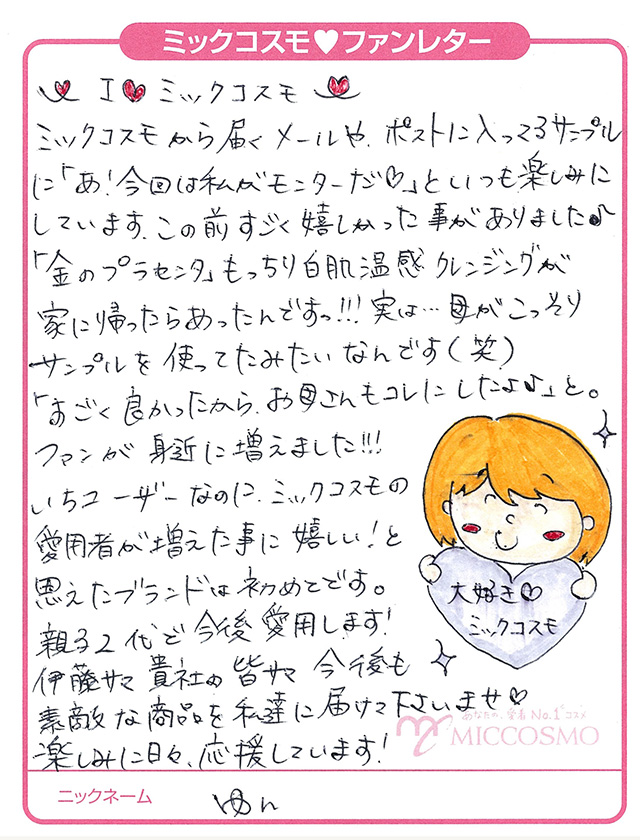 ミックコスモ♥ファンレター
I ♥ ミックコスモ
ミックコスモから届くメールや、ポストに入ってるサンプル
に「あ!今回は私がモニターだ♡」といつも楽しみに
しています。この前すごく嬉しかった事がありました♪
「金のプラセンタ」もっちり白肌温感クレンジングが
家に帰ったらあったんですっ!!!実は…母がこっそり
サンプルを使ってたみたいなんです(笑)
「すごく良かったから、お母さんもコレにしたよ♪」と。
ファンが身近に増えました!!!
いちユーザーなのに、ミックコスモの
愛用者が増えた事に嬉しい!と
思えたブランドは初めてです。
親子2代で今後愛用します!
伊藤サマ 貴社の皆サマ 今後も
素敵な商品を私達に届けて下さいませ♡
楽しみに日々、応援しています!
大好き♡
ミックコスモ
あなたの、愛着No.1コスメ
MICCOSMO
ニックネーム ゆん